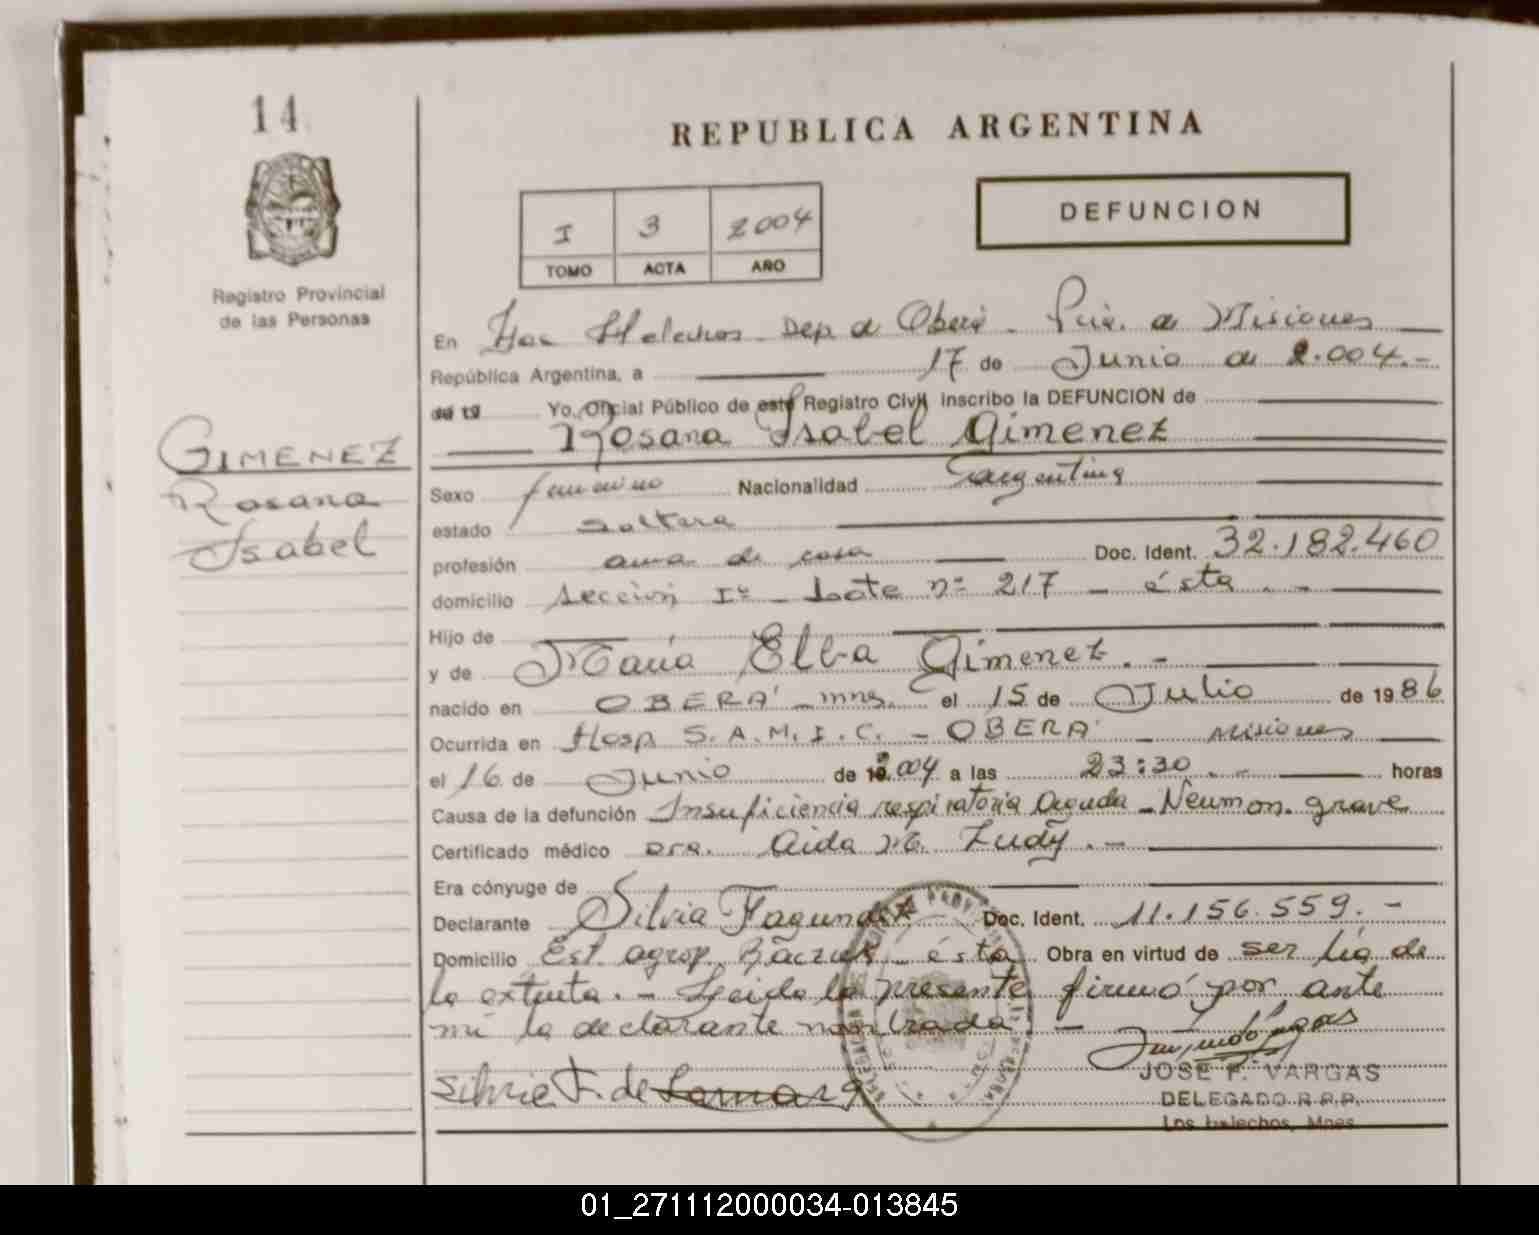 14
REPUBLICA ARGENTINA
I 3 2004
TOMO ACTA AÑO
DEFUNCION
Registro Provincial
de las Personas
GIMENEZ
Rosana
Isabel
En Los Helechos - Dep. de Oberá - Pcia. de Misiones
República Argentina, a 17 de Junio de 2.004.-
de 19 Yo, Oficial Público de este Registro Civil inscribo la DEFUNCION de
Rosana Isabel Gimenez
Sexo femenino Nacionalidad argentina
estado soltera
profesión ama de casa Doc. Ident. 32.182.460
domicilio Sección Iª - Lote nº 217 - ésta. -
Hijo de
y de María Elba Gimenez. -
nacido en OBERA' - mns. el 15 de Julio de 1986
Ocurrida en Hosp S.A.M.I.C. - OBERA' - Misiones
el 16 de Junio de 2004 a las 23:30. - horas
Causa de la defunción Insuficiencia respiratoria aguda - Neumon. grave
Certificado médico Dra. Aida M. . -
Era cónyuge de
Declarante Silvia Doc. Ident. 11.156.559. -
Domicilio Est. agrop. - ésta Obra en virtud de ser tía de
la extinta. - Leída la presente firmó por ante
mí la declarante nombrada. -
Silvia F. de
JOSE F. VARGAS
DELEGADO R.P.P.
Los Helechos, Mnes.
01_271112000034-013845